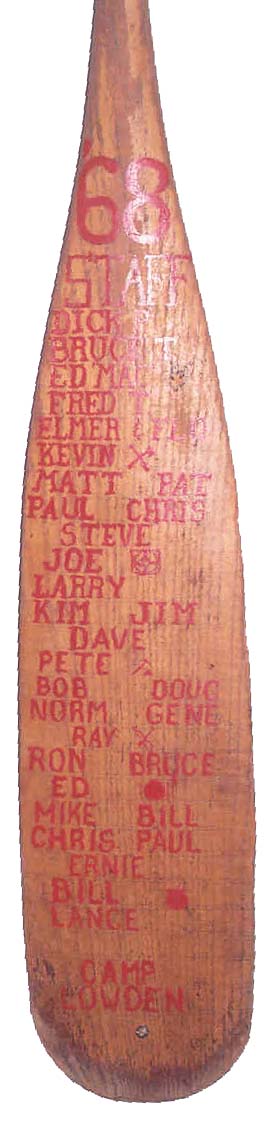 '68
STAFF
DICK
BRUCE
ED
FRED
ELMER
KEVIN
MATT PAT
PAUL CHRIS
STEVE
JOE
LARRY
KIM JIM
DAVE
PETE
BOB DOUG
NORM GENE
RAY
RON BRUCE
ED
MIKE BILL
CHRIS PAUL
ERNIE
BILL
LANCE
CAMP
LOWDEN